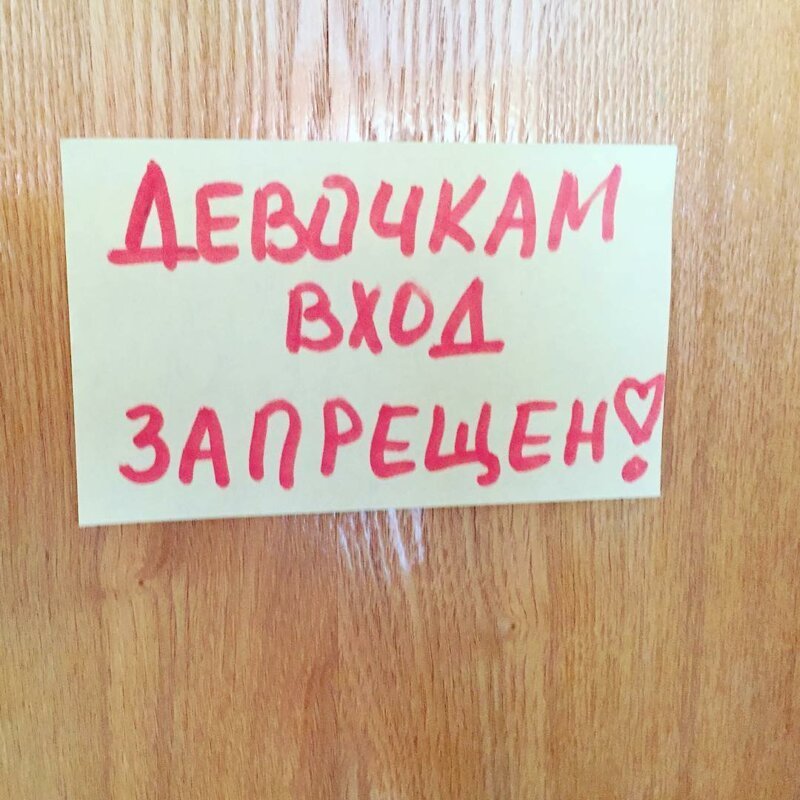 ДЕВОЧКАМ
ВХОД
ЗАПРЕЩЕН!